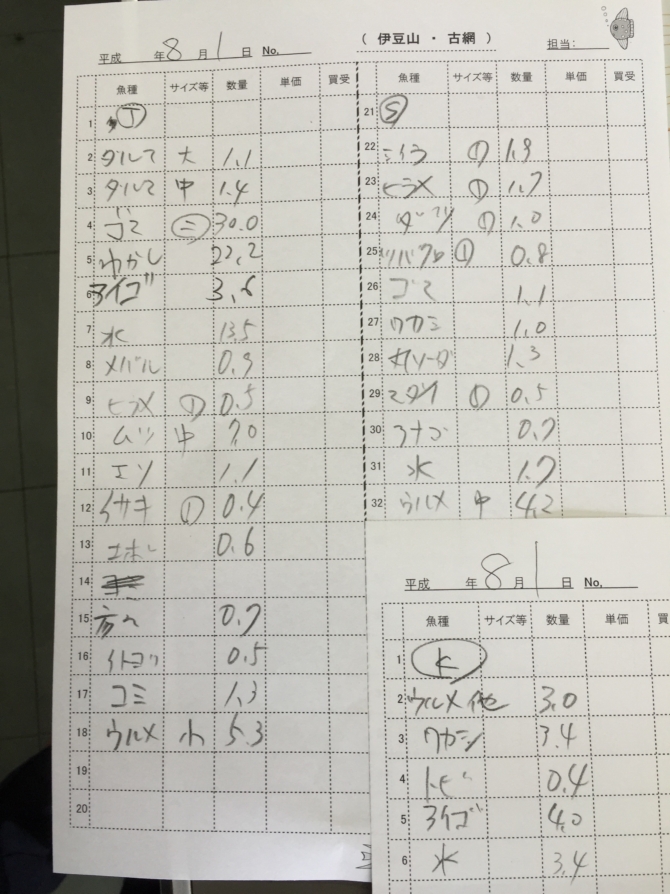 ( 伊豆山 ・ 古網 )
平成 年 8 月 1 日 No. 担当:
魚種 サイズ等 数量 単価 買受
1 Ⓣ
2 ダルマ 大 1.1
3 ダルマ 中 1.4
4 ゴマ ㊂ 30.0
5 わかし 22.2
6 アイゴ 3.6
7 水 13.5
8 メバル 0.9
9 ヒラメ ① 0.5
10 ムツ 中 7.0
11 エソ 1.1
12 イサキ ① 0.4
13 エボし 0.6
14
15 0.7
16 イトヨリ 0.5
17 ゴミ 1.3
18 ウルメ 小 5.3
19
20
魚種 サイズ等 数量 単価 買受
21 Ⓢ
22 シイラ ① 1.9
23 ヒラメ ① 1.7
24 ダツ ① 1.0
25 ツバクロ ① 0.8
26 ゴマ 1.1
27 ワカシ 1.0
28 丸ソーダ 1.3
29 マダイ ① 0.5
30 アナゴ 0.7
31 水 1.7
32 ウルメ 中 4.2
平成 年 8 月 1 日 No.
魚種 サイズ等 数量 単価 買
1 Ⓚ
2 ウルメ 他 3.0
3 ワカシ 3.4
4 トビ 0.4
5 アイゴ 4.0
6 水 3.4